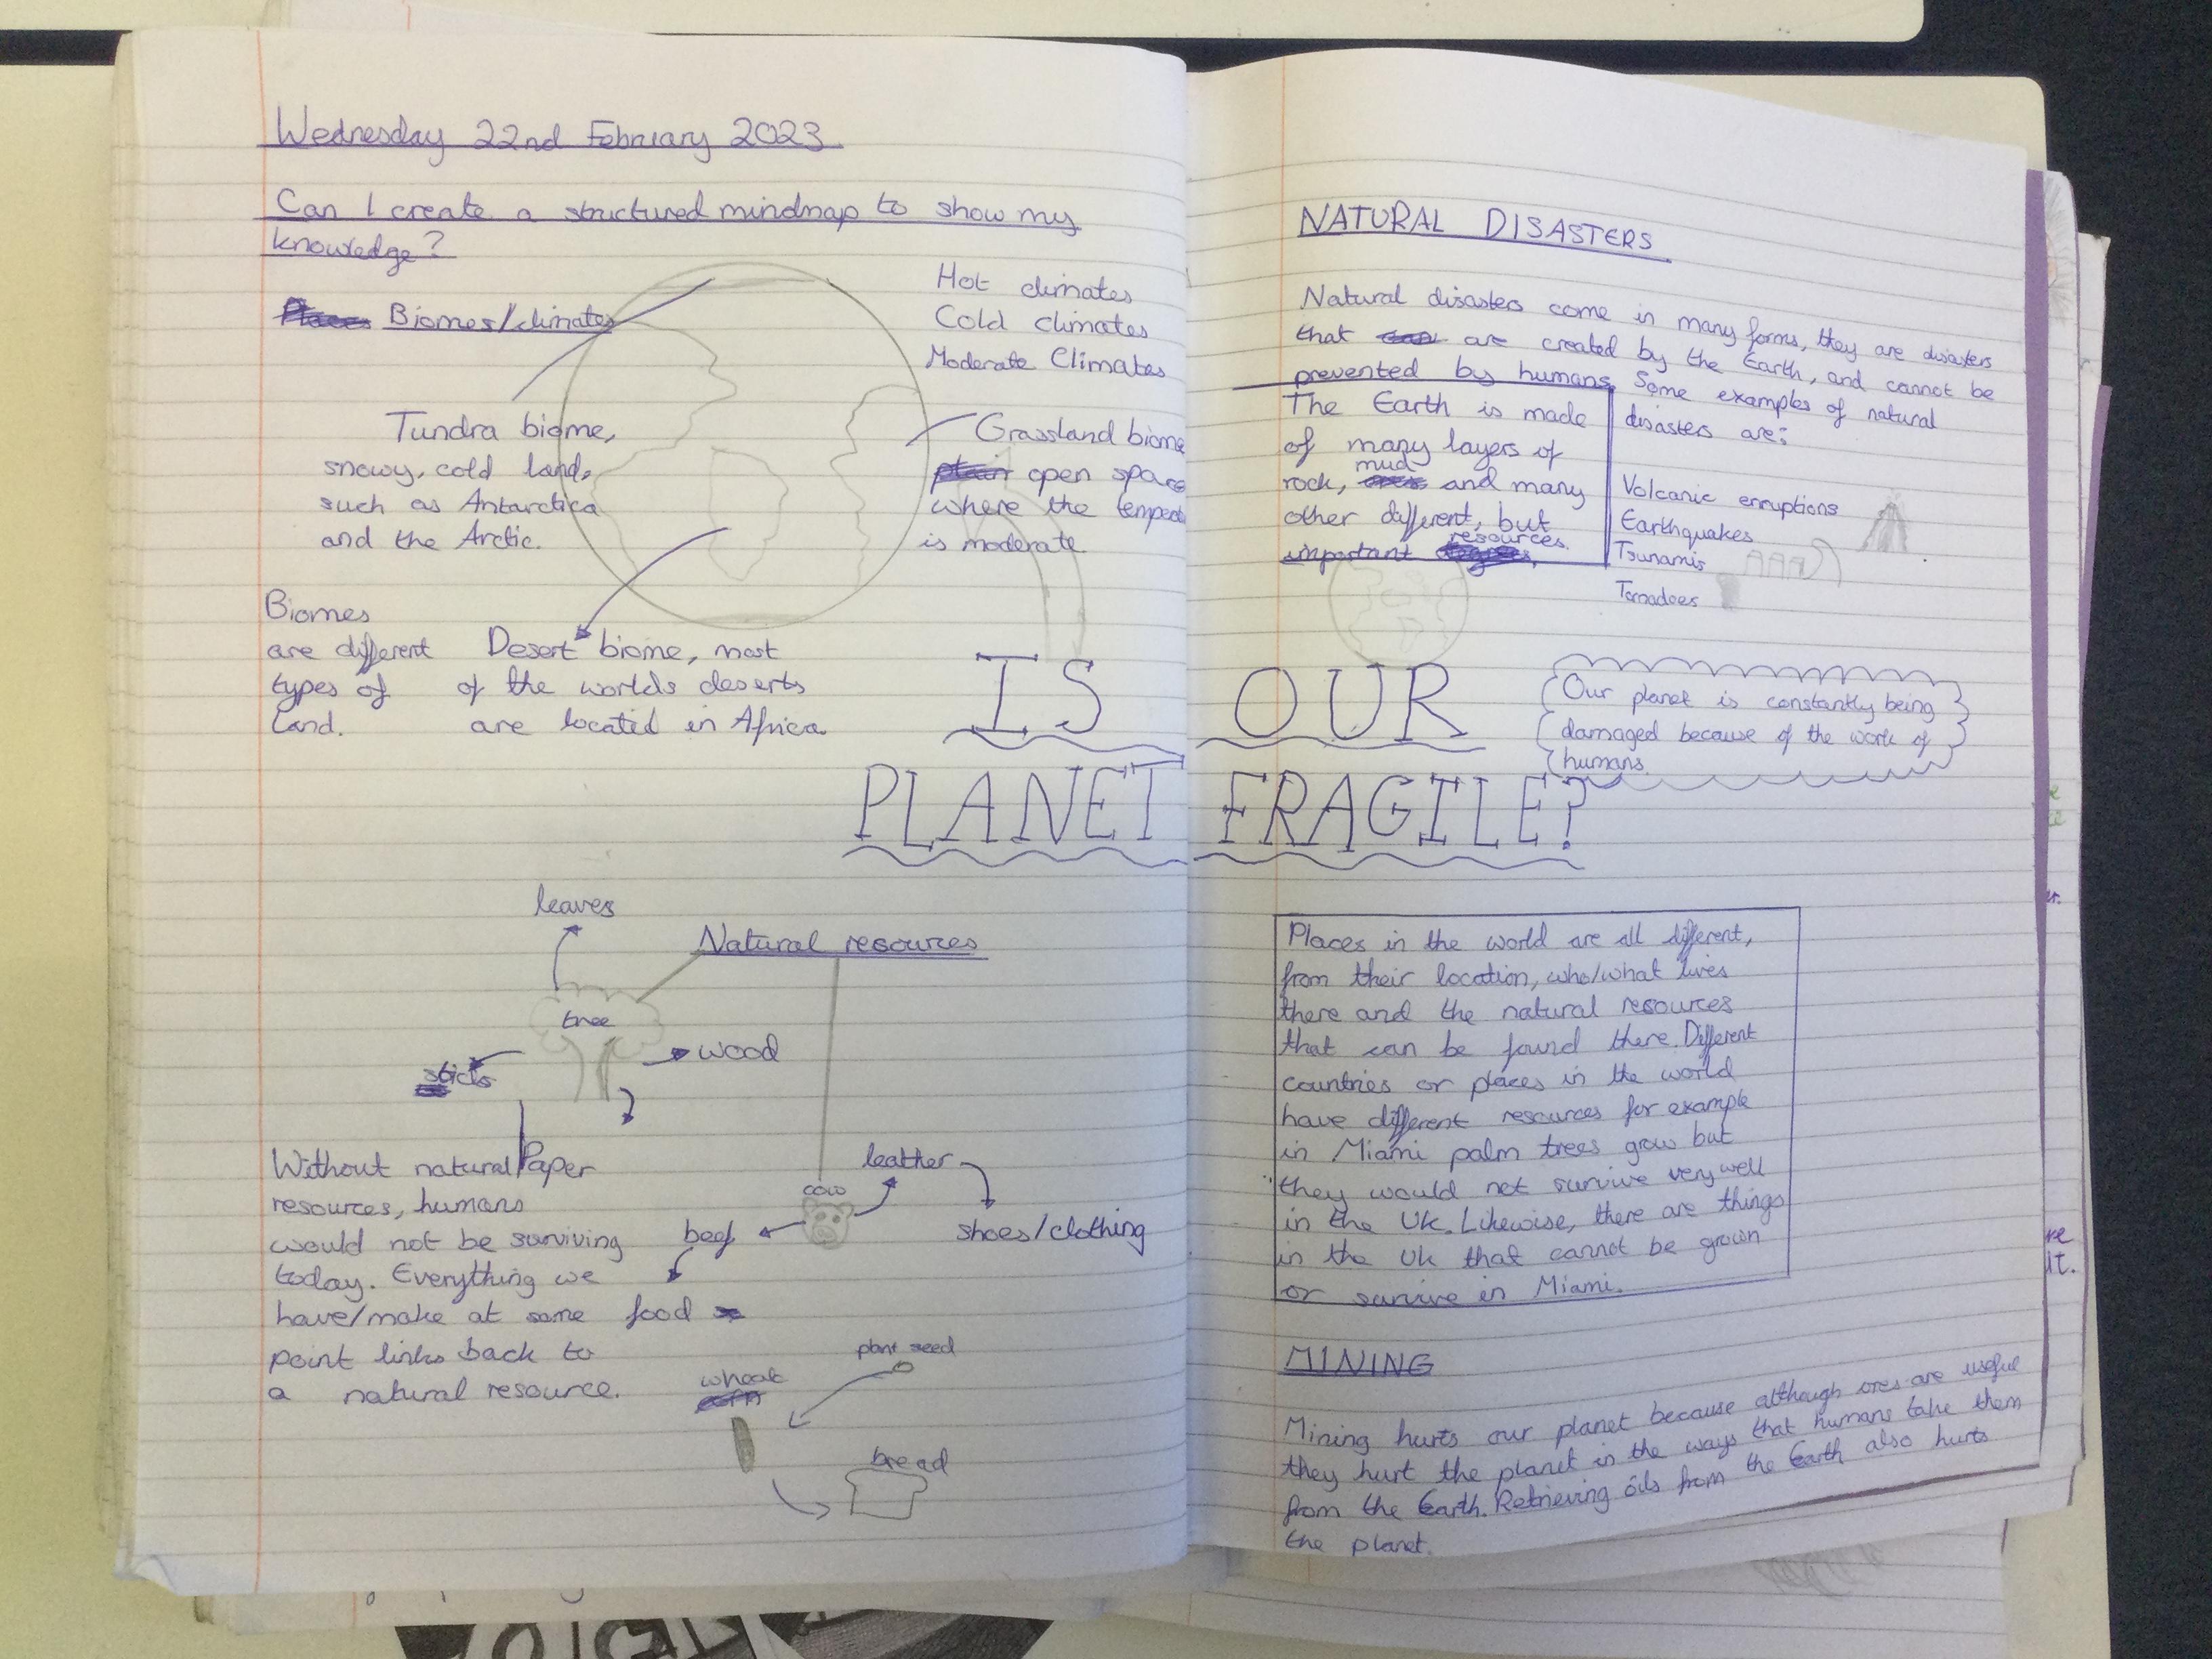 Wednesday 22nd February 2023.
Can I create a structured mindmap to show my
knowledge?
Places Biomes/climates
Hot climates
Cold climates
Moderate Climates
Tundra biome,
snowy, cold land,
such as Antarctica
and the Arctic.
Grassland biome
plain open space
where the temperat
is moderate
Biomes
are different
types of
land.
Desert biome, most
of the worlds deserts
are located in Africa.
NATURAL DISASTERS
Natural disasters come in many forms, they are disasters
that can are created by the Earth, and cannot be
prevented by humans. Some examples of natural
disasters are:
Volcanic erruptions
Earthquakes
Tsunamis
Tornadoes
The Earth is made
of many layers of
rock, mud and many
other different, but
important resources.
IS OUR
PLANET FRAGILE?
Our planet is constantly being
damaged because of the work of
humans.
Natural resources
leaves
tree
wood
sticks
Paper
Without natural
resources, humans
would not be surviving
today. Everything we
have/make at some
point links back to
a natural resource.
cow
leather
shoes/clothing
beef
food
plant seed
wheat
corn
bread
Places in the world are all different,
from their location, who/what lives
there and the natural resources
that can be found there. Different
countries or places in the world
have different resources for example
in Miami palm trees grow but
they would not survive very well
in the UK. Likewise, there are things
in the Uk that cannot be grown
or survive in Miami.
MINING
Mining hurts our planet because although ores are useful
they hurt the planet in the ways that humans take them
from the Earth. Retrieving oils from the Earth also hurts
the planet.
re
it.